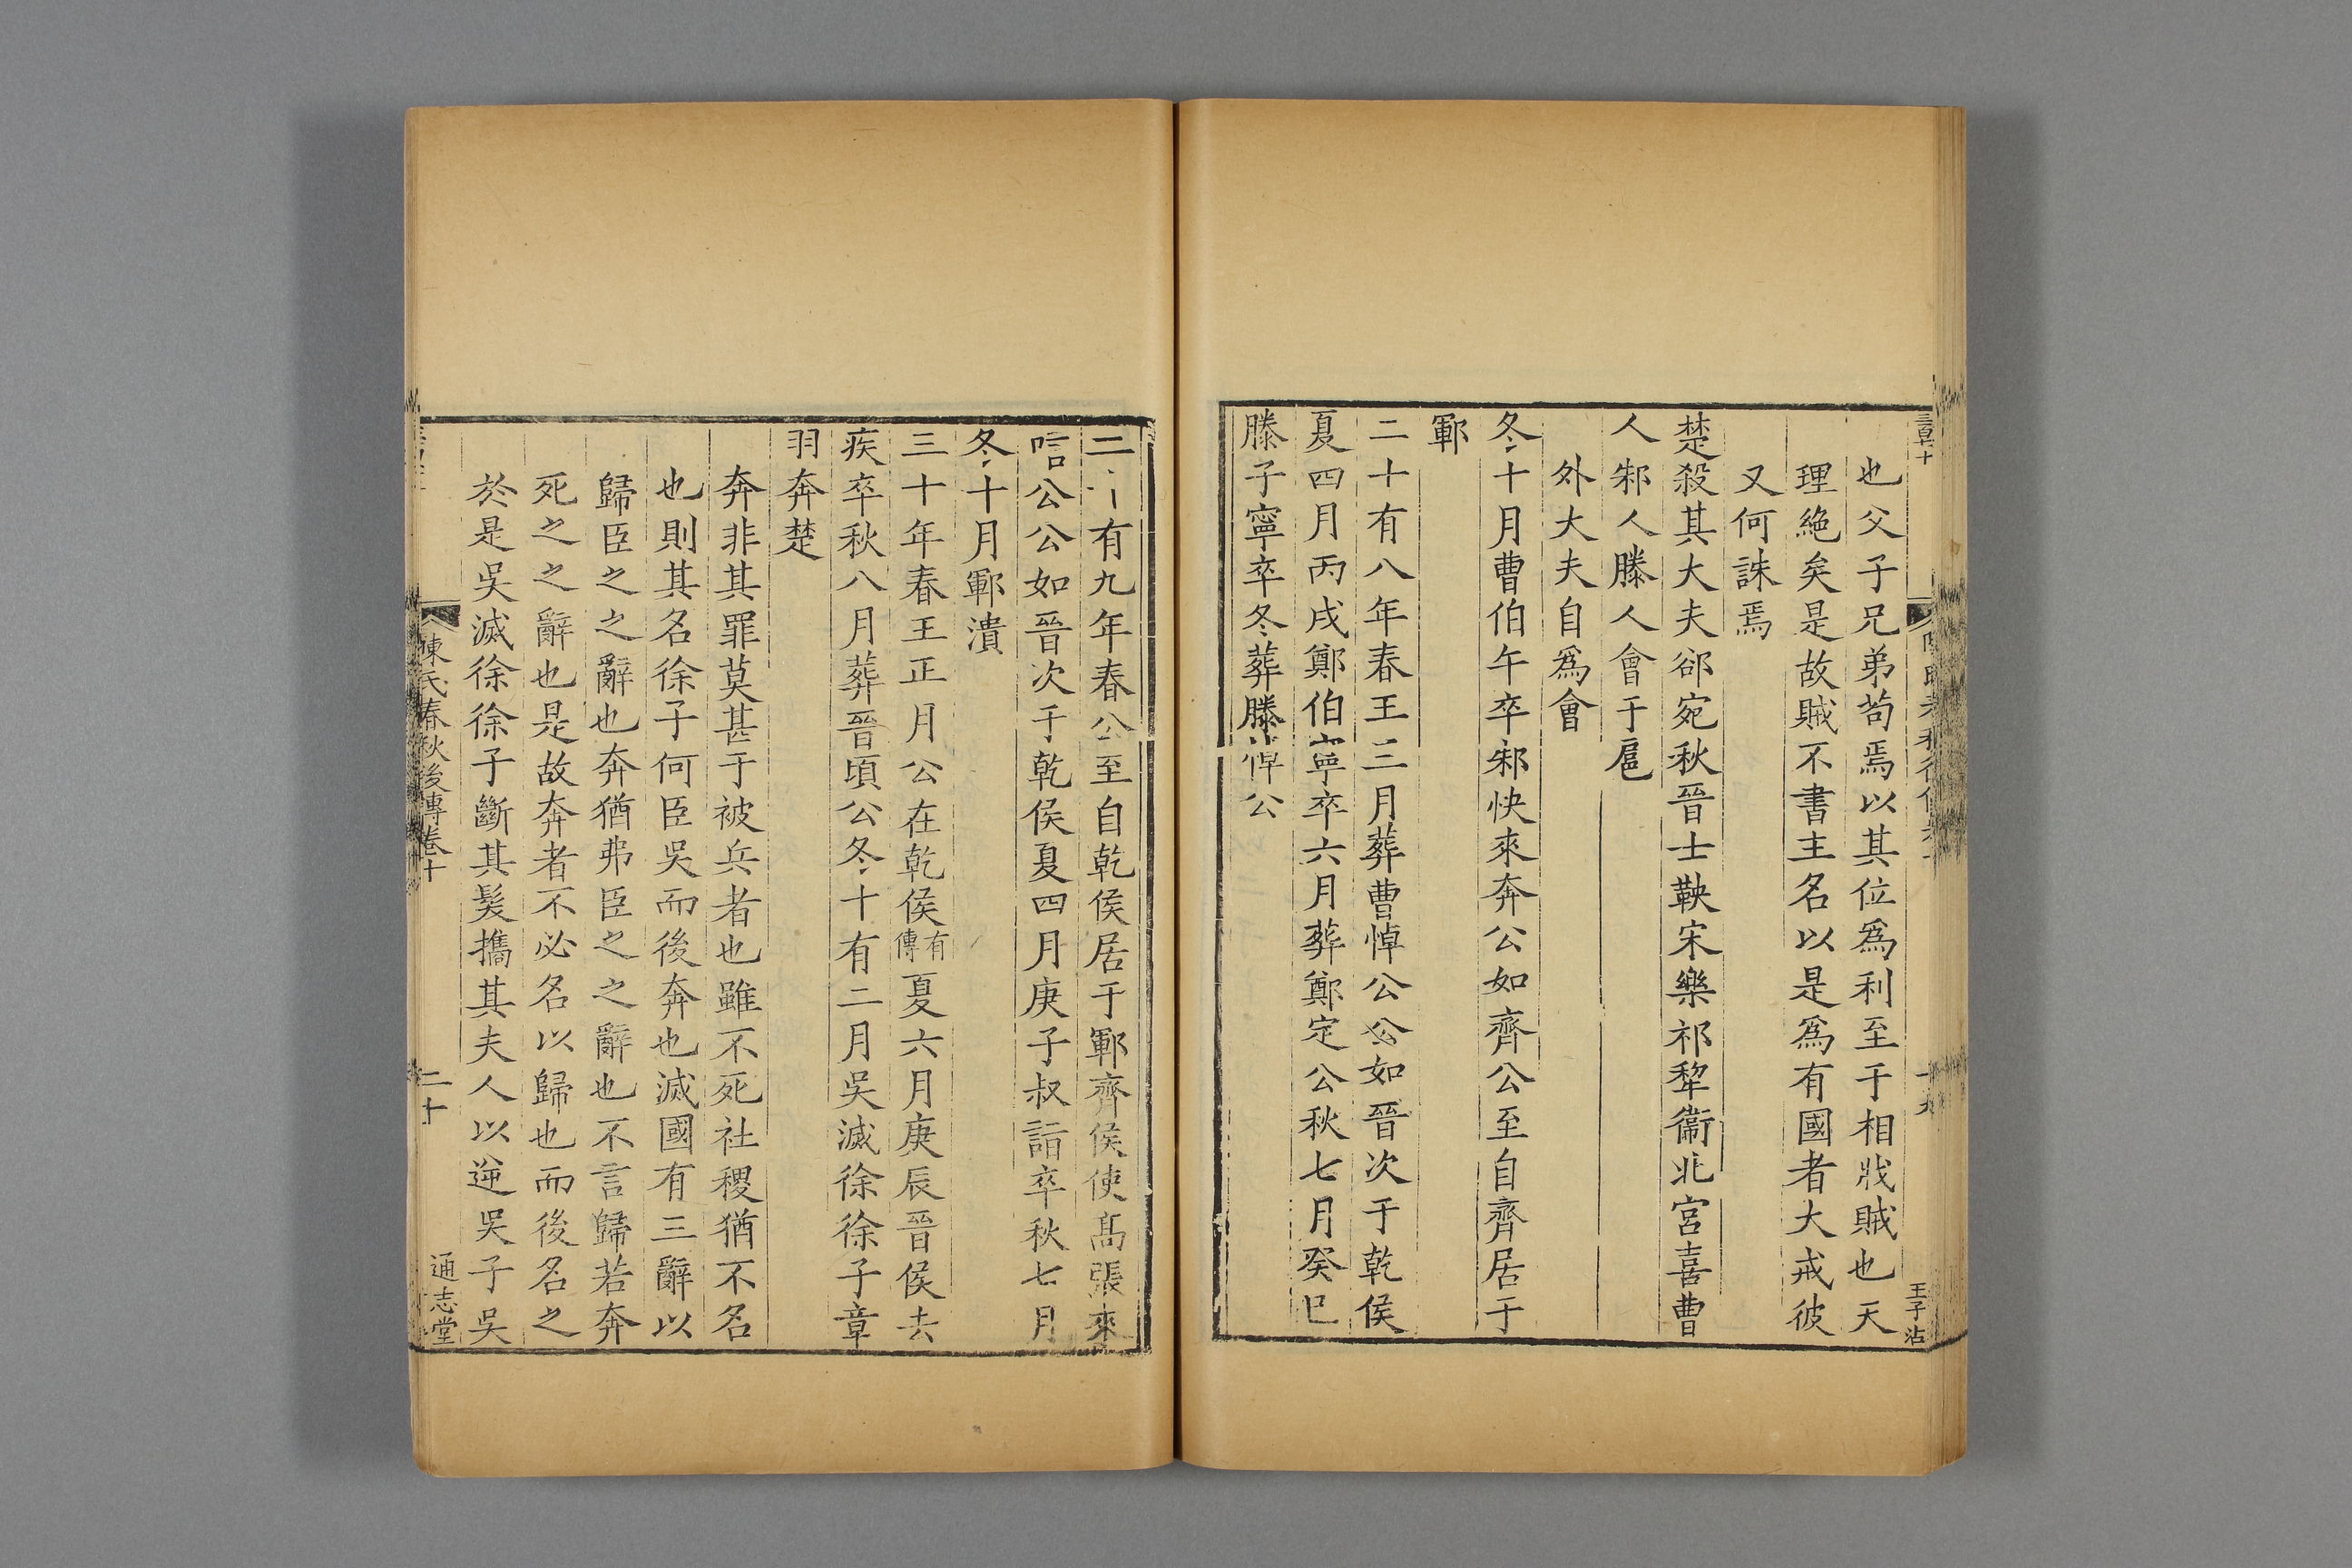 也父子兄弟茍焉以其位爲利至于相戕賊也天
理絶矣是故賊不書主名以是爲有國者大戒彼
又何誅焉
楚殺其大夫郤宛秋晉士鞅宋樂祁犂衞北宮喜曹
人邾人滕人會于扈
外大夫自爲會
冬十月曹伯午卒邾快來奔公如齊公至自齊居于
鄆
二十有八年春王三月葬曹悼公公如晉次于乾侯
夏四月丙戌鄭伯寧卒六月葬鄭定公秋七月癸巳
滕子寧卒冬葬滕悼公
王子沾
二十有九年春公至自乾侯居于鄆齊侯使髙張來
唁公公如晉次于乾侯夏四月庚子叔詣卒秋七月
冬十月鄆潰
三十年春王正月公在乾侯有傳夏六月庚辰晉侯去
疾卒秋八月葬晉頃公冬十有二月吳滅徐徐子章
羽奔楚
奔非其罪莫甚于被兵者也雖不死社稷猶不名
也則其名徐子何臣吳而後奔也滅國有三辭以
歸臣之之辭也奔猶弗臣之之辭也不言歸若奔
死之之辭也是故奔者不必名以歸也而後名之
於是吳滅徐徐子斷其髮攜其夫人以逆吳子吳
陳氏春秋後傳卷十
二十
通志堂